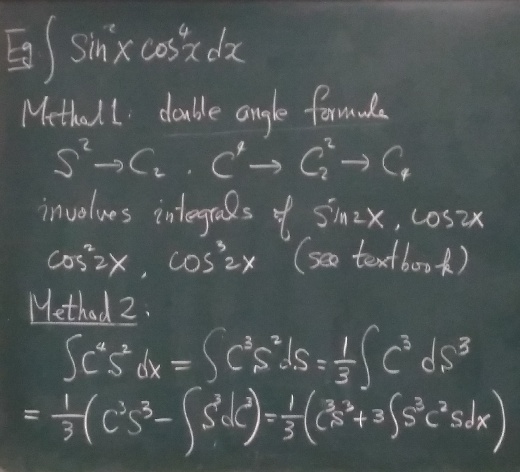 Eg ∫ sin²x cos⁴x dx
Method 1: double angle formula
S² → C₂ . C⁴ → C₂² → C₄
involves integrals of sin2x, cos2x
cos²2x, cos³2x (see textbook)
Method 2:
∫C⁴S² dx = ∫C³S²dS = 1/3 ∫C³ dS³
= 1/3 (C³S³ - ∫S³dC³) = 1/3 (C³S³ + 3∫S³C²Sdx)